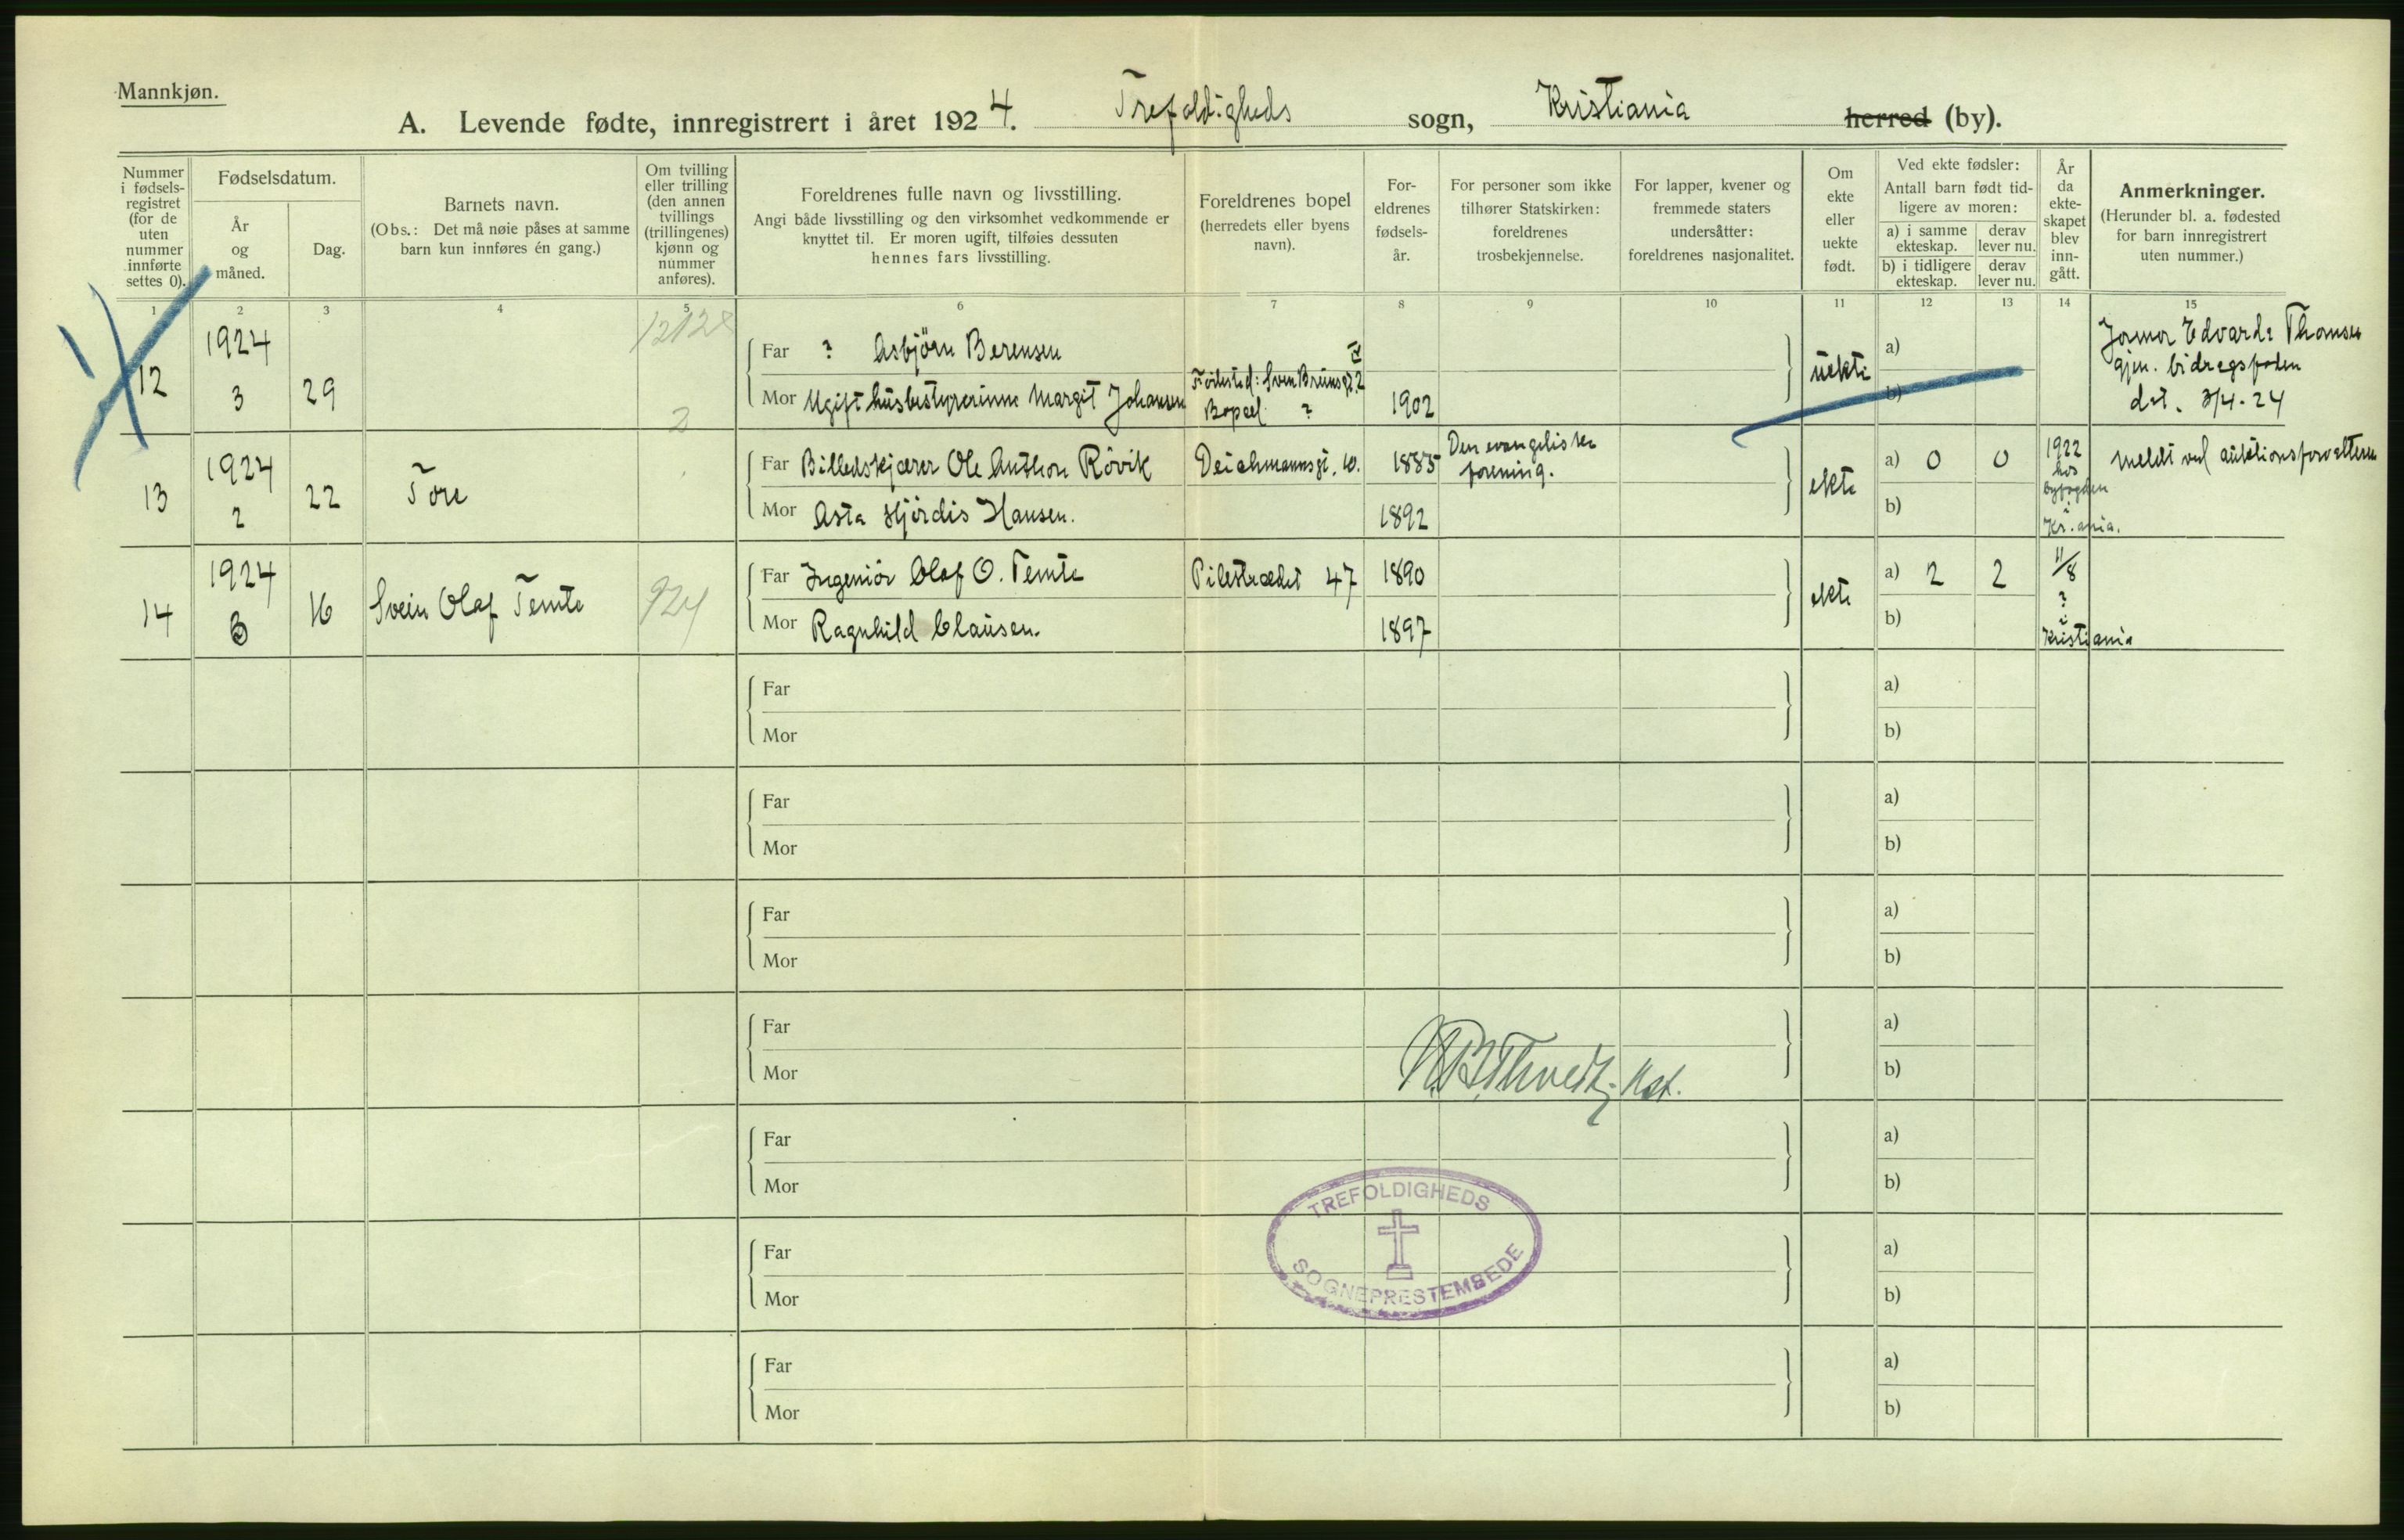 Mannkjøn.
A. Levende fødte, innregistrert i året 1924. Trefoldigheds sogn, Kristiania herred (by).
Nummer i fødsels-registret (for de uten nummer innførte settes 0).
Fødselsdatum.
År og måned.
Dag.
Barnets navn.
(Obs.: Det må nøie påses at samme barn kun innføres én gang.)
Om tvilling eller trilling (den annen tvillings (trillingenes) kjønn og nummer anføres).
Foreldrenes fulle navn og livsstilling.
Angi både livsstilling og den virksomhet vedkommende er knyttet til. Er moren ugift, tilføies dessuten hennes fars livsstilling.
Foreldrenes bopel (herredets eller byens navn).
For-eldrenes fødsels-år.
For personer som ikke tilhører Statskirken: foreldrenes trosbekjennelse.
For lapper, kvener og fremmede staters undersåtter: foreldrenes nasjonalitet.
Om ekte eller uekte født.
Ved ekte fødsler:
Antall barn født tid-ligere av moren:
a) i samme ekteskap.
derav lever nu.
b) i tidligere ekteskap.
derav lever nu.
År da ekte-skapet blev inn-gått.
Anmerkninger.
(Herunder bl. a. fødested for barn innregistrert uten nummer.)
1 2 3 4 5 6 7 8 9 10 11 12 13 14 15
12 1924 3 29
Far ? Asbjörn Berensen
Mor Ugift husbestyrerinne Margit Johansen
Födested: Sven Bruns gt. 2
Bopæl ?
1902
uekte
a)
b)
Thomsen
gjen. bidragsfoden
det. 3/4-24
13 1924 2 22 Tore
Far Billedskjærer Ole Anthon Rövik Deichmannsgt. 10. 1885 Den evangeliske forening.
Mor Asta Hjördis Hansen. 1892
ekte
a) 0 0
b)
1922 hos byfogden i Kr.ania.
meldt ved auktionsforvalteren
14 1924 3 16 Svein Olaf Temte 924
Far Ingeniör Olaf O. Temte Pilestrædet 47 1890
Mor Ragnhild Clausen. 1897
ekte
a) 2 2
b)
11/8 ? i Kristiania
Far a)
Mor b)
Far a)
Mor b)
Far a)
Mor b)
Far a)
Mor b)
Far a)
Mor b)
Far a)
Mor b)
Far a)
Mor b)
TREFOLDIGHEDS
SOGNEPRESTEMBEDE